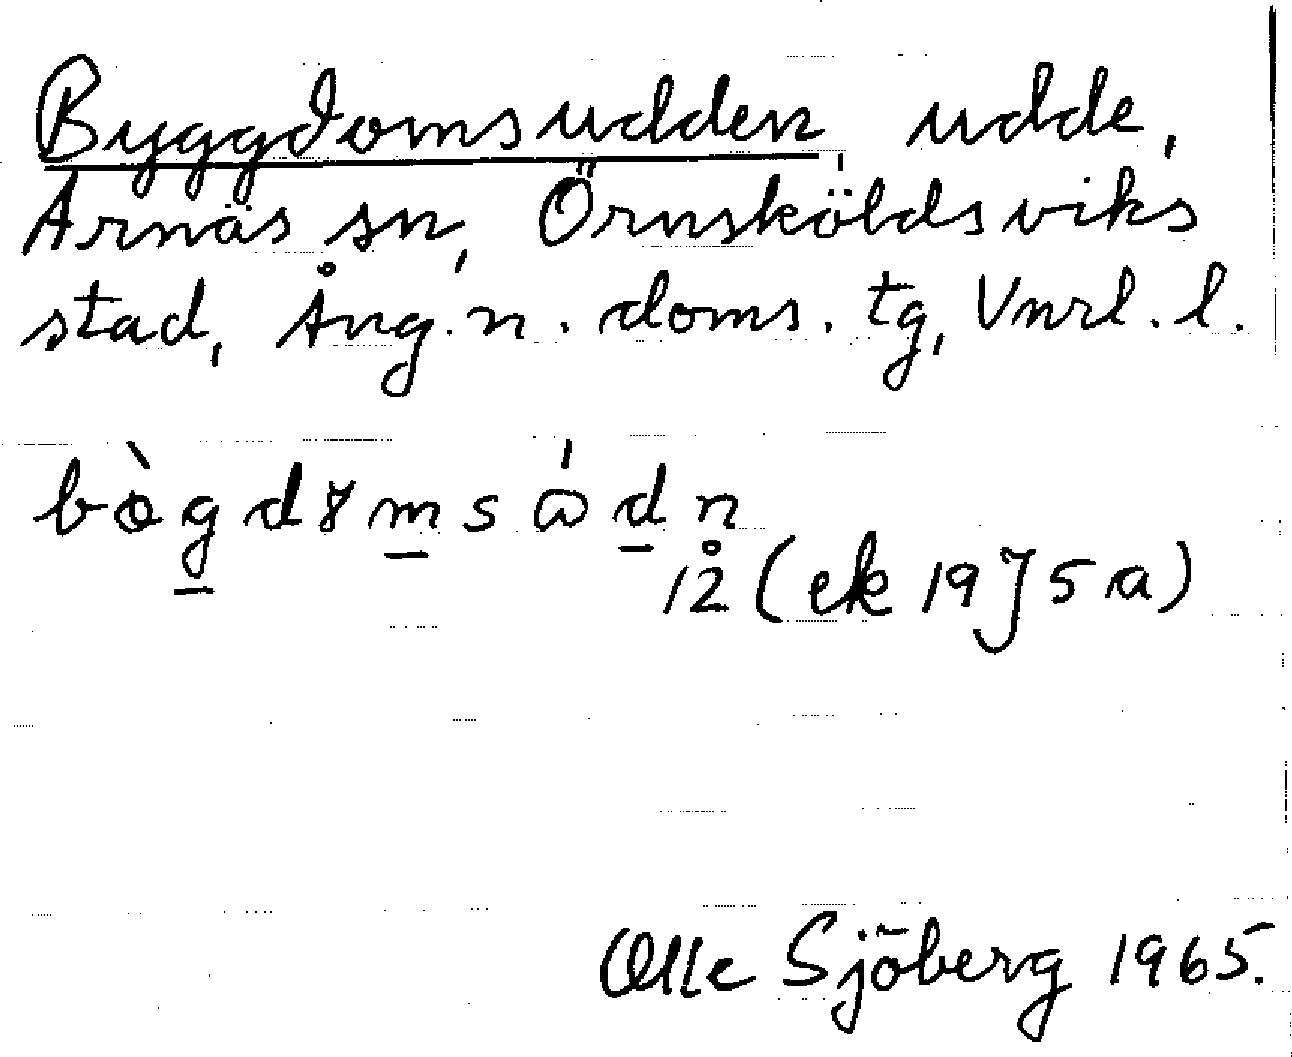 Byggdomsudden, udde,
Arnäs sn, Örnsköldsviks
stad, Ång. n. doms. tg, Vnrl. l.
12 (ek 19J5a)
Olle Sjöberg 1965.